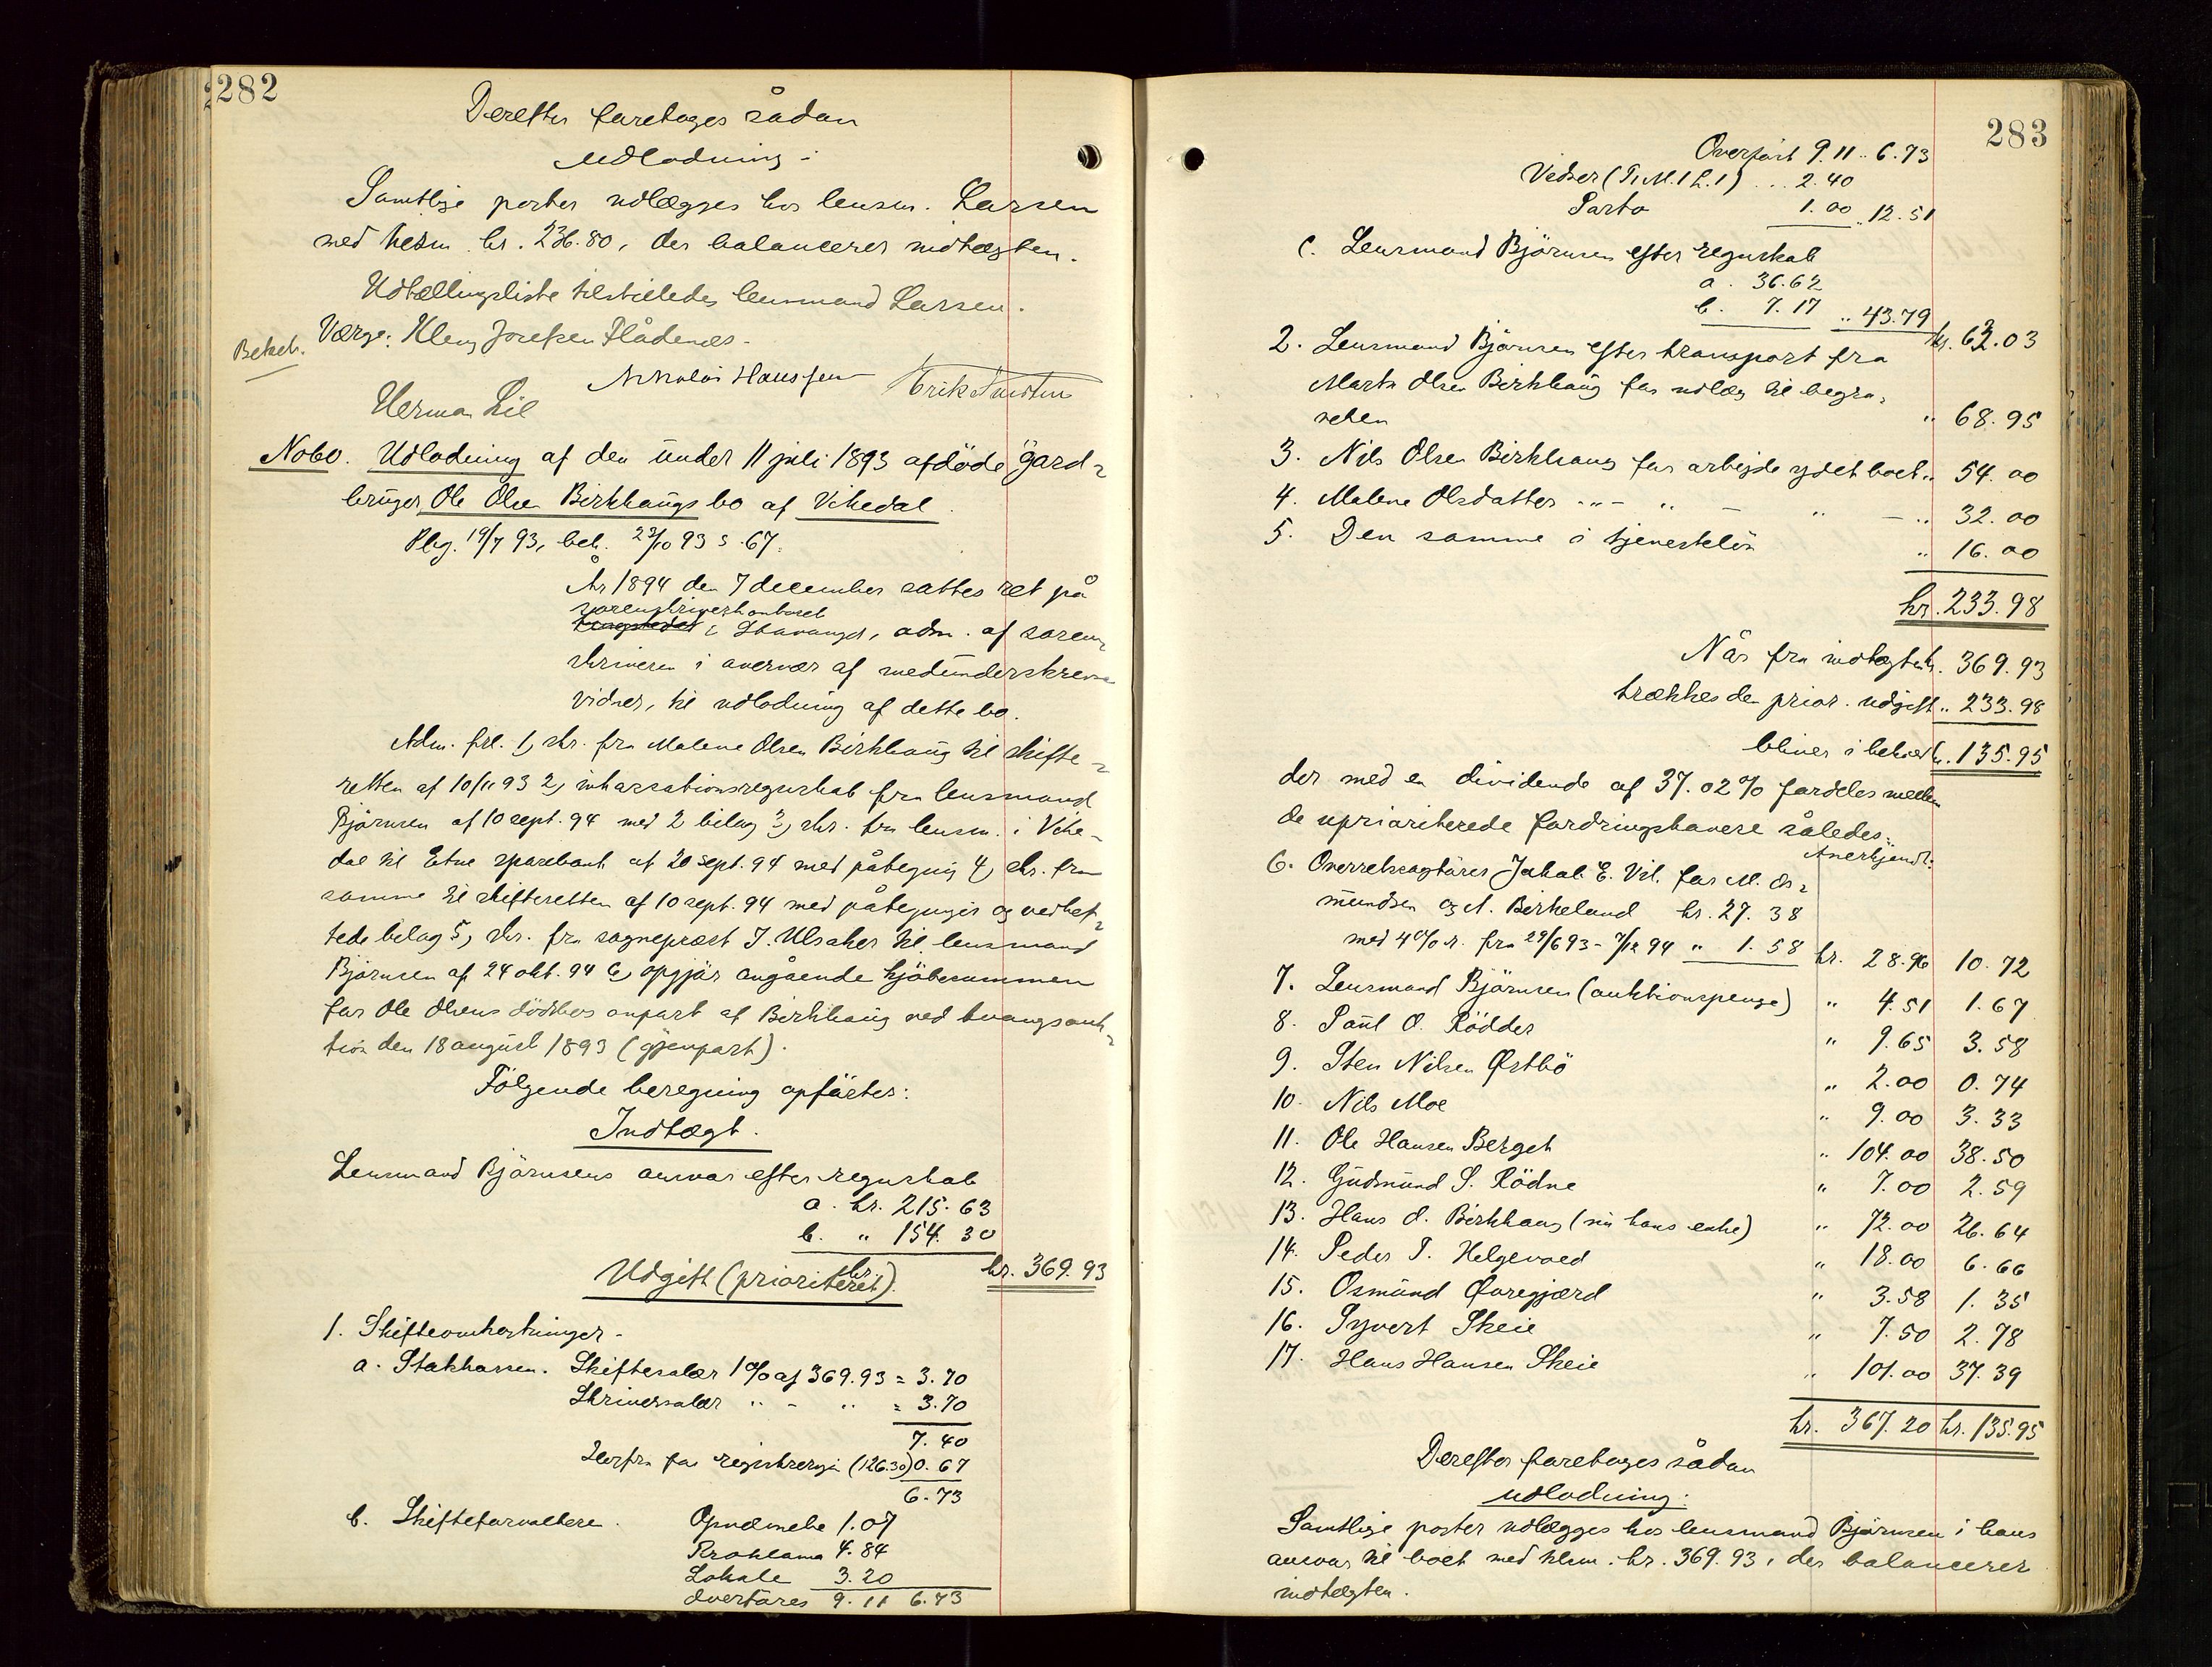 282
Derefter foretages sådan
udlodning:
Samtlige poster udlægges hos lensm. Larsen
med tilsm. kr. 236.80, der balancerer indtægten.
Udtællingsliste tilstilledes lensmand Larsen.
Værge: Kleng Josefsen Flådenes.
Bekch.
Nikolai Hanssen Erik Knutsen
Herman Lie
No 60. Udlodning af den under 11 juli 1893 afdöde gård-
bruger Ole Olsen Birkhaugs bo af Vikedal.
Plg. 19/7 93, beh. 23/10 93 s. 67.
År 1894 den 7 december sattes ret på
sorenskriverkontoret
tingstedet i Stavanger, adm. af soren-
skriveren i overvær af medunderskrevne
vidner, til udlodning af dette bo.
Adm. frl. 1, skr. fra Malene Olsen Birkhaug til skifte-
retten af 10/11 93 2, inkassationsregnskab fra lensmand
Bjørnsen af 10 sept. 94 med 2 bilag 3, skr. fra lensm. i Vike-
dal til Etne sparebank af 20 sept. 94 med påtegning 4, skr. fra
samme til skifteretten af 10 sept. 94 med påtegninger og vedhef-
tede bilag 5, skr. fra sognepræst J. Ulsaker til lensmand
Bjørnsen af 24 okt. 94 6, opgjør angående kjöbesummen
for Ole Olsens dödsbos anpart af Birkhaug ved tvangsauk-
tion den 18 august 1893 (gjenpart).
Fölgende beregning opførtes:
Indtægt.
Lensmand Bjørnsens ansvar efter regnskab
a. kr. 215.63
b. " 154.30
kr. 369.93
Udgift (prioriteret).
1. Skifteomkostninger.
a. Statskassen. Skiftesalær 1% af 369.93 = 3.70
Skriversalær " - " = 3.70
7.40
Herfra for registrering (126.30) 0.67
6.73
b. Skifteforvaltere. Opnævnelse 1.07
Proklama 4.84
Lokale 3.20
Overføres 9.11 6.73
283
Overført 9.11 .. 6.73
Vidner (Tr. M. 1 L. 1) ... 2.40
Porto 1.00 .. 12.51
c. Lensmand Bjørnsen efter regnskab
a. 36.62
b. 7.17 .. 43.79
kr. 63.03
2. Lensmand Bjørnsen efter transport fra
Marta Olsen Birkhaug for udlæg til begra-
velsen " 68.95
3. Nils Olsen Birkhaug for arbejde ydet boet .. 54.00
4. Malene Olsdatter " - " - " - .. 32.00
5. Den samme i tjenestelön .. 16.00
kr. 233.98
Når fra indtægten kr. 369.93
trækkes den prior. udgift .. 233.98
bliver i behold kr. 135.95
der med en dividende af 37.02% fordeles mellem
de uprioriterede fordringshavere således:
Anerkjendt:
6. Overretssagförer Jakob E. Vil. for M. Os-
mundsen og A. Birkeland kr. 27.38
med 4% r. fra 29/6 93 - 7/12 94 " 1.58 kr. 28.96 10.72
7. Lensmand Bjørnsen (auktionspenge) " 4.51 1.67
8. Paul O. Rödder " 9.65 3.58
9. Sten Nilsen Østbö " 2.00 0.74
10. Nils Moe " 9.00 3.33
11. Ole Hansen Berget " 104.00 38.50
12. Gudmund S. Rödne " 7.00 2.59
13. Hans O. Birkhaug (nu hans enke) " 72.00 26.64
14. Peder T. Helgevold " 18.00 6.66
15. Osmund Øvregjærd " 3.58 1.35
16. Syvert Skeie " 7.50 2.78
17. Hans Hansen Skeie " 101.00 37.39
kr. 367.20 kr. 135.95
Derefter foretages sådan
udlodning:
Samtlige poster udlægges hos lensmand Bjørnsen i hans
ansvar til boet med tilsm. kr. 369.93, der balancerer
indtægten.